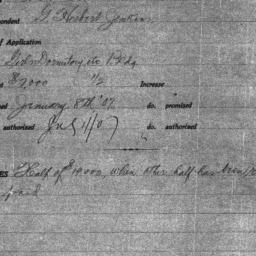 ondent G. Herbert Jenkins
of Application
Girls Dormitory, etc Bldg
$7,000 1/2 Increase
January 8th '07. do. promised
authorized Jul 1/07 do. authorized
ES Half of $14,000, when other half has been
paid